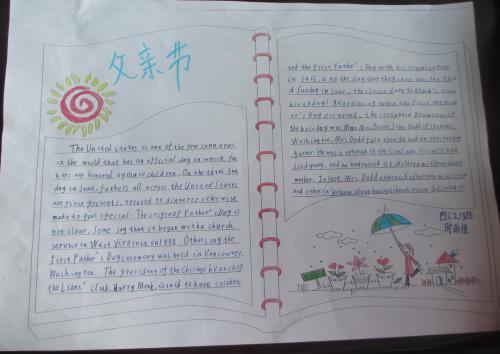 父亲节
The United States is one of the few countries
in the world that has an official day on which fat
hers are honored by their children. On the third Sun
day in June, fathers all across the United States
are given presents, treated to dinner or otherwise
made to feel special. The origin of Father's Day is
not clear. Some say that it began with a church
service in West Virginia in 1908. Others say the
first Father's Day ceremony was held in Vancouver,
Washington. The president of the Chicago branch of
the Lions' Club, Harry Meek, is said to have celebra
ted the first Father's Day with his organization
in 1915, and the day that they chose was the thir
d Sunday in June, the closest date to Meek's own
birthday! Regardless of when the first Fat
her's Day occurred, the strongest promoter of
the holiday was Mrs. Bruce John Dodd of Spokane,
Washington. Mrs. Dodd felt that she had an outstanding
father. He was a veteran of the Civil War. His wife had
died young, and he had raised six children without their
mother. In 1909, Mrs. Dodd approached her own minister
and others in Spokane about having a church service dedicated to